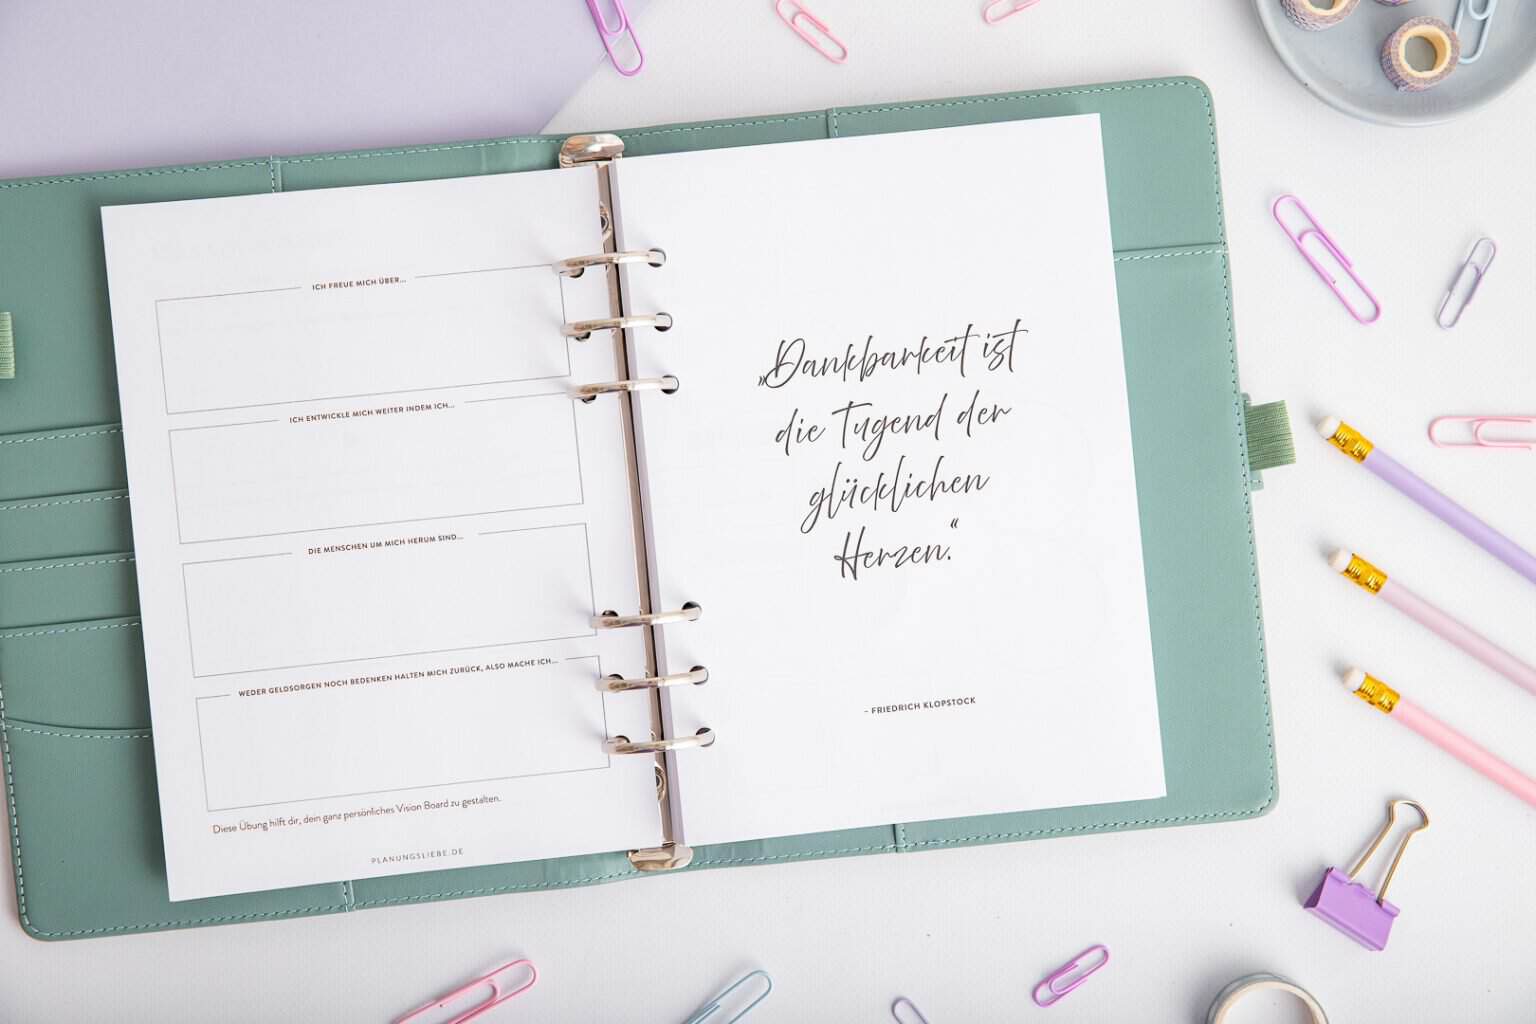 ICH FREUE MICH ÜBER...
ICH ENTWICKLE MICH WEITER INDEM ICH...
DIE MENSCHEN UM MICH HERUM SIND...
WEDER GELDSORGEN NOCH BEDENKEN HALTEN MICH ZURÜCK, ALSO MACHE ICH...
Diese Übung hilft dir, dein ganz persönliches Vision Board zu gestalten.
PLANUNGSLIEBE.DE
„Dankbarkeit ist
die Tugend der
glücklichen
Herzen.“
- FRIEDRICH KLOPSTOCK